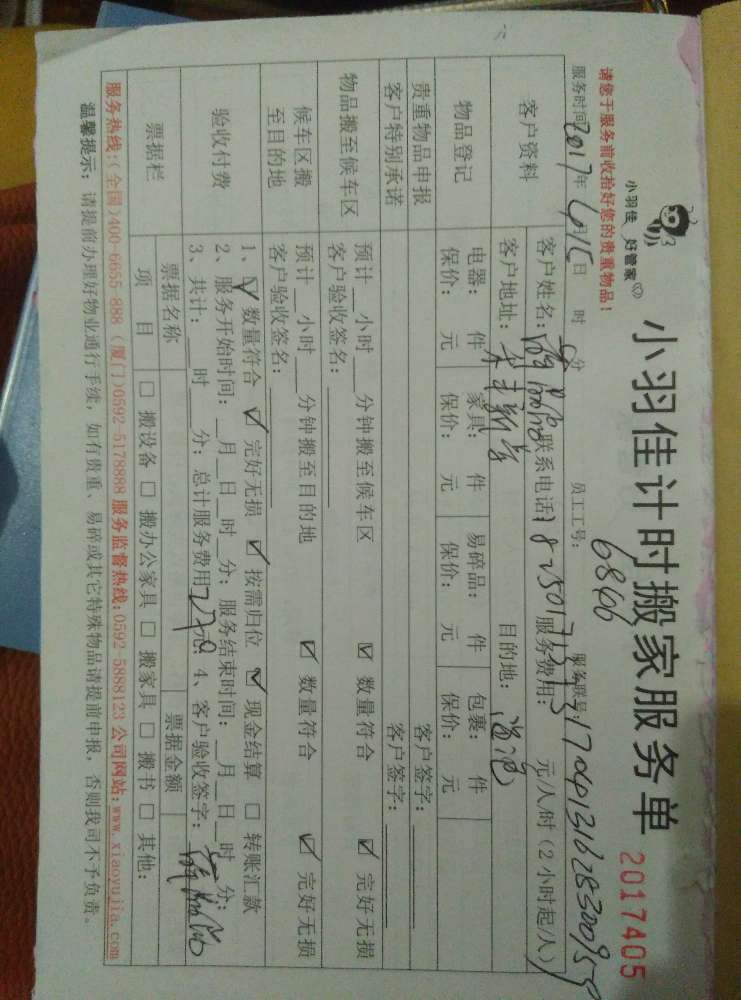 小羽佳 好管家
小羽佳计时搬家服务单 2017405
请您于服务前收拾好您的贵重物品！
服务时间 2017年 4月15日 时 分 员工工号: 6846 服务联号:
客户资料 客户姓名: 联系电话 服务费用: 元/人/时 (2小时起/人)
客户地址: 目的地:
物品登记 电器: 件 家具: 件 易碎品: 件 包裹: 件
保价: 元 保价: 元 保价: 元 保价: 元
贵重物品申报 客户签字:
客户特别承诺 客户签字:
物品搬至候车区 预计__小时__分钟搬至候车区 ☑ 数量符合 ☑ 完好无损
客户验收签名:
候车区搬至目的地 预计__小时__分钟搬至目的地 ☑ 数量符合 ☑ 完好无损
客户验收签名:
验收付费 1、☑ 数量符合 ☑ 完好无损 ☑ 按需归位 ☑ 现金结算 □ 转账汇款
2、服务开始时间:__月__日__时__分; 服务结束时间:__月__日__时__分;
3、共计:__时__分; 总计服务费用 元; 4、客户验收签字:
票据栏 票据名称 票据金额
项目 □ 搬设备 □ 搬办公家具 □ 搬家具 □ 搬书 □ 其他:
服务热线:(全国)400-6655-888 (厦门)0592-5178888 服务监督热线:0592-5888123 公司网站:www.xiaoyujia.com
温馨提示: 请提前办理好物业通行手续, 如有贵重、易碎或其它特殊物品请提前申报, 否则我司不予负责。